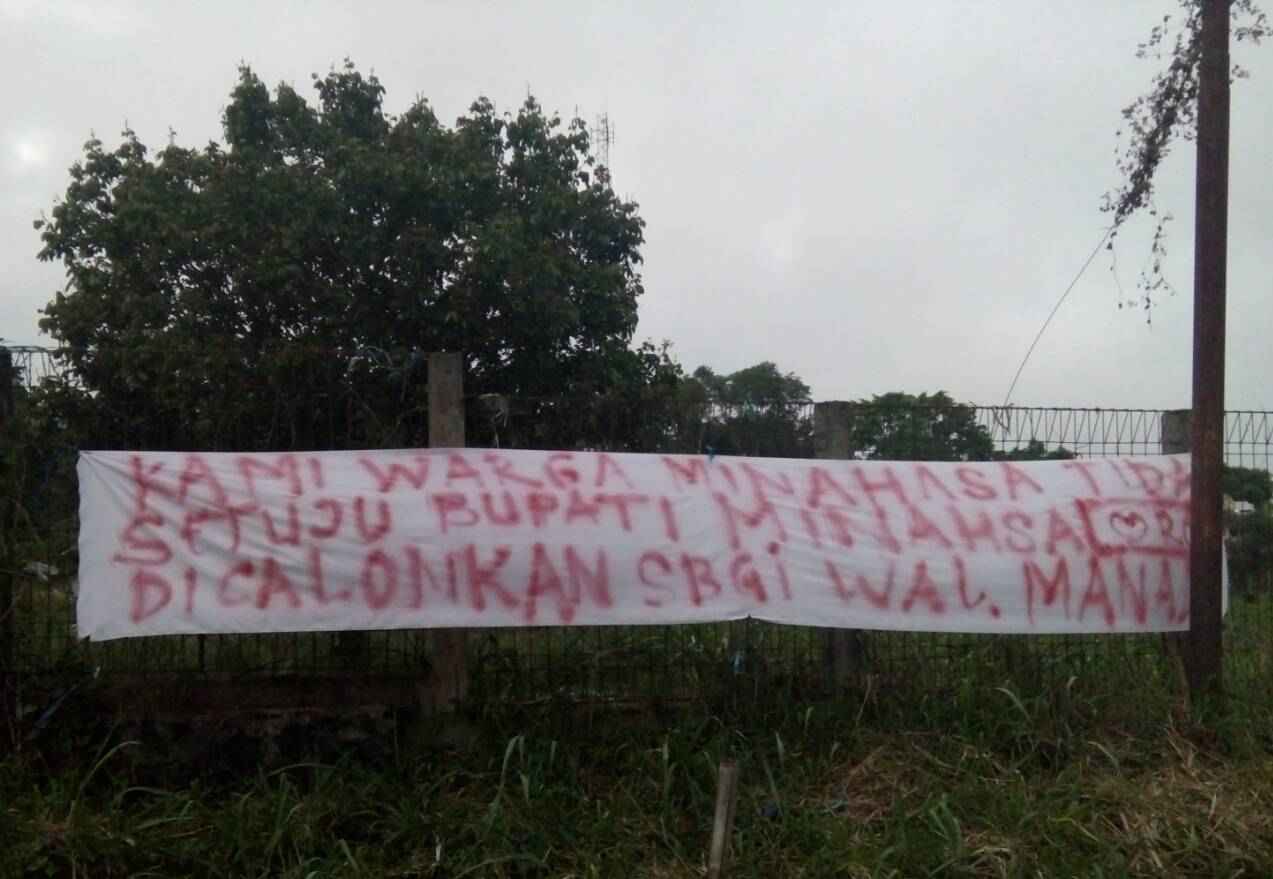 KAMI WARGA MINAHASA TIDA
SETUJU BUPATI MINAHSA
DICALONKAN SBGI WAL. MANA